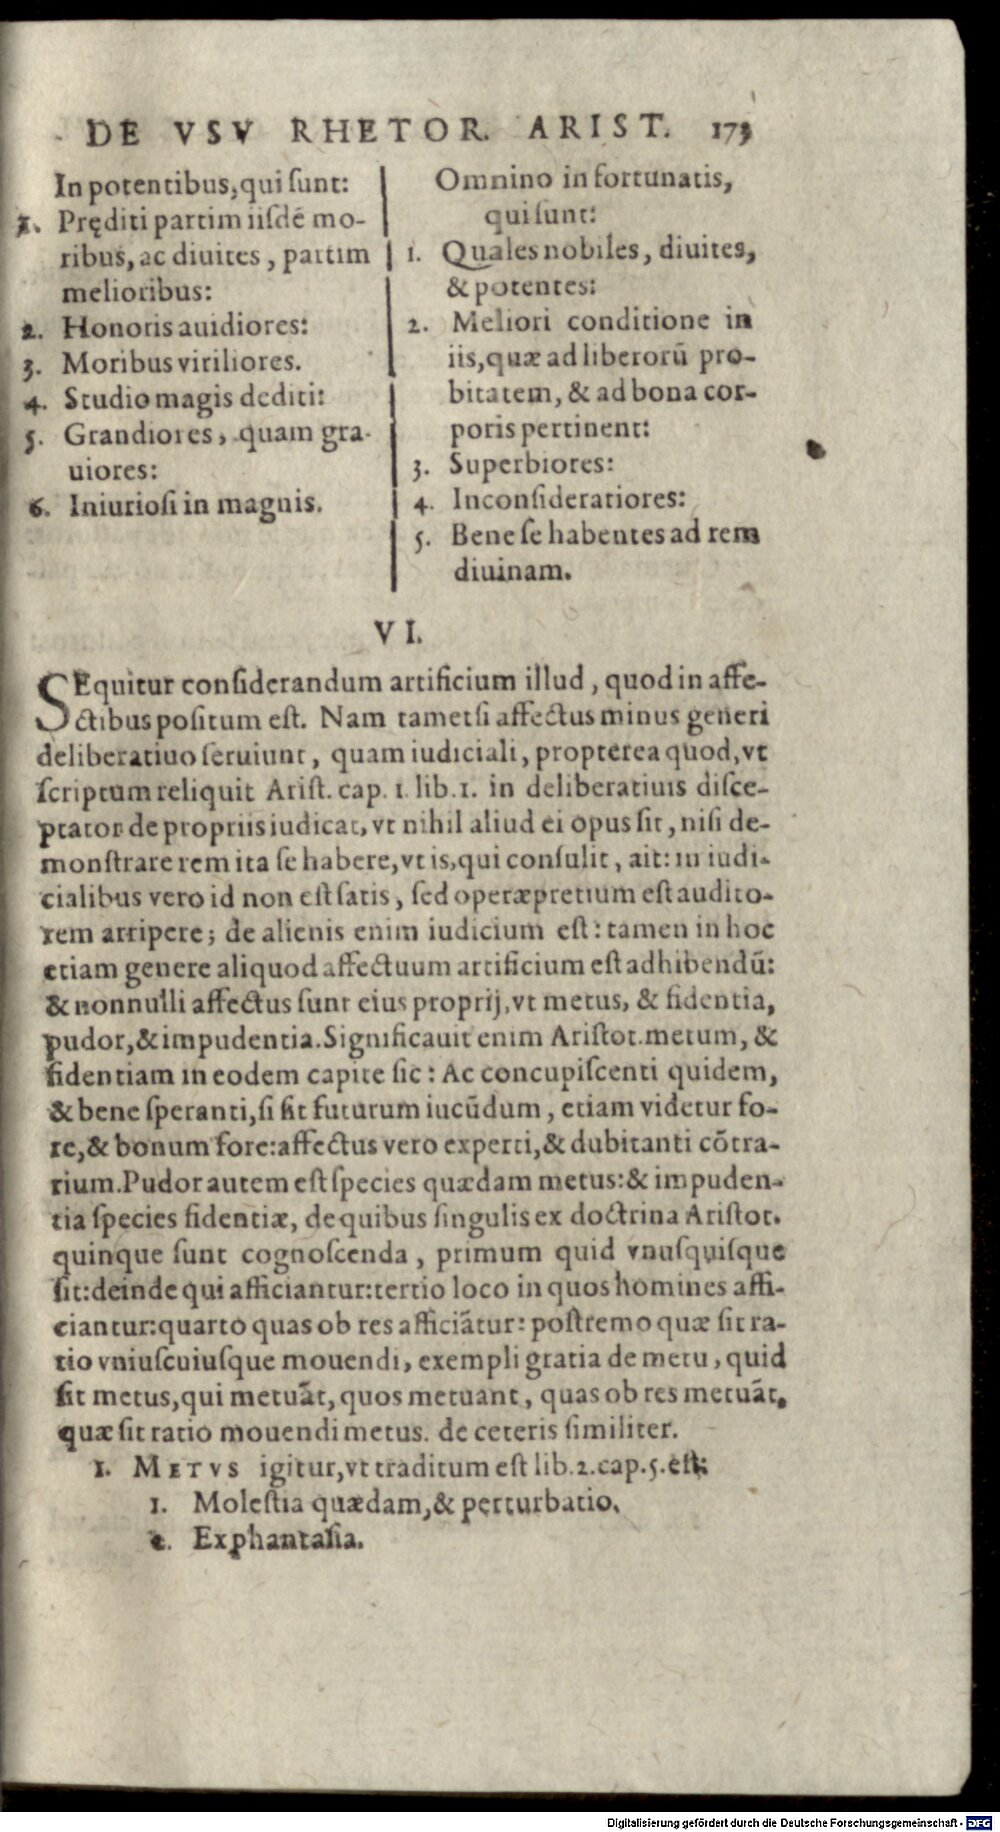 DE VSV RHETOR. ARIST. 173
In potentibus, qui ſunt:
1. Pręditi partim iiſdē mo-
ribus, ac diuites, partim
melioribus:
2. Honoris auidiores:
3. Moribus viriliores.
4. Studio magis dediti:
5. Grandiores, quam gra-
uiores:
6. Iniurioſi in magnis.
Omnino in fortunatis,
qui ſunt:
1. Quales nobiles, diuites,
& potentes:
2. Meliori conditione in
iis, quæ ad liberorū pro-
bitatem, & ad bona cor-
poris pertinent:
3. Superbiores:
4. Inconſideratiores:
5. Bene ſe habentes ad rem
diuinam.
VI.
SEquitur conſiderandum artificium illud, quod in affe-
ctibus poſitum eſt. Nam tametſi affectus minus generi
deliberatiuo ſeruiunt, quam iudiciali, propterea quod, vt
ſcriptum reliquit Ariſt. cap. 1. lib. 1. in deliberatiuis diſce-
ptator de propriis iudicat, vt nihil aliud ei opus ſit, niſi de-
monſtrare rem ita ſe habere, vt is, qui conſulit, ait: in iudi-
cialibus vero id non eſt ſatis, ſed operæpretium eſt audito-
rem arripere; de alienis enim iudicium eſt: tamen in hoc
etiam genere aliquod affectuum artificium eſt adhibendū:
& nonnulli affectus ſunt eius proprij, vt metus, & fidentia,
pudor, & impudentia. Significauit enim Ariſtot. metum, &
fidentiam in eodem capite ſic: Ac concupiſcenti quidem,
& bene ſperanti, ſi ſit futurum iucūdum, etiam videtur fo-
re, & bonum fore: affectus vero experti, & dubitanti cōtra-
rium. Pudor autem eſt ſpecies quædam metus: & impuden-
tia ſpecies fidentiæ, de quibus ſingulis ex doctrina Ariſtot.
quinque ſunt cognoſcenda, primum quid vnuſquiſque
ſit: deinde qui afficiantur: tertio loco in quos homines affi-
ciantur: quarto quas ob res afficiātur: poſtremo quæ ſit ra-
tio vniuſcuiuſque mouendi, exempli gratia de metu, quid
ſit metus, qui metuāt, quos metuant, quas ob res metuāt,
quæ ſit ratio mouendi metus. de ceteris ſimiliter.
1. METVS igitur, vt traditum eſt lib. 2. cap. 5. eſt:
1. Moleſtia quædam, & perturbatio.
2. Ex phantaſia.
Digitalisierung gefördert durch die Deutsche Forschungsgemeinschaft - DFG